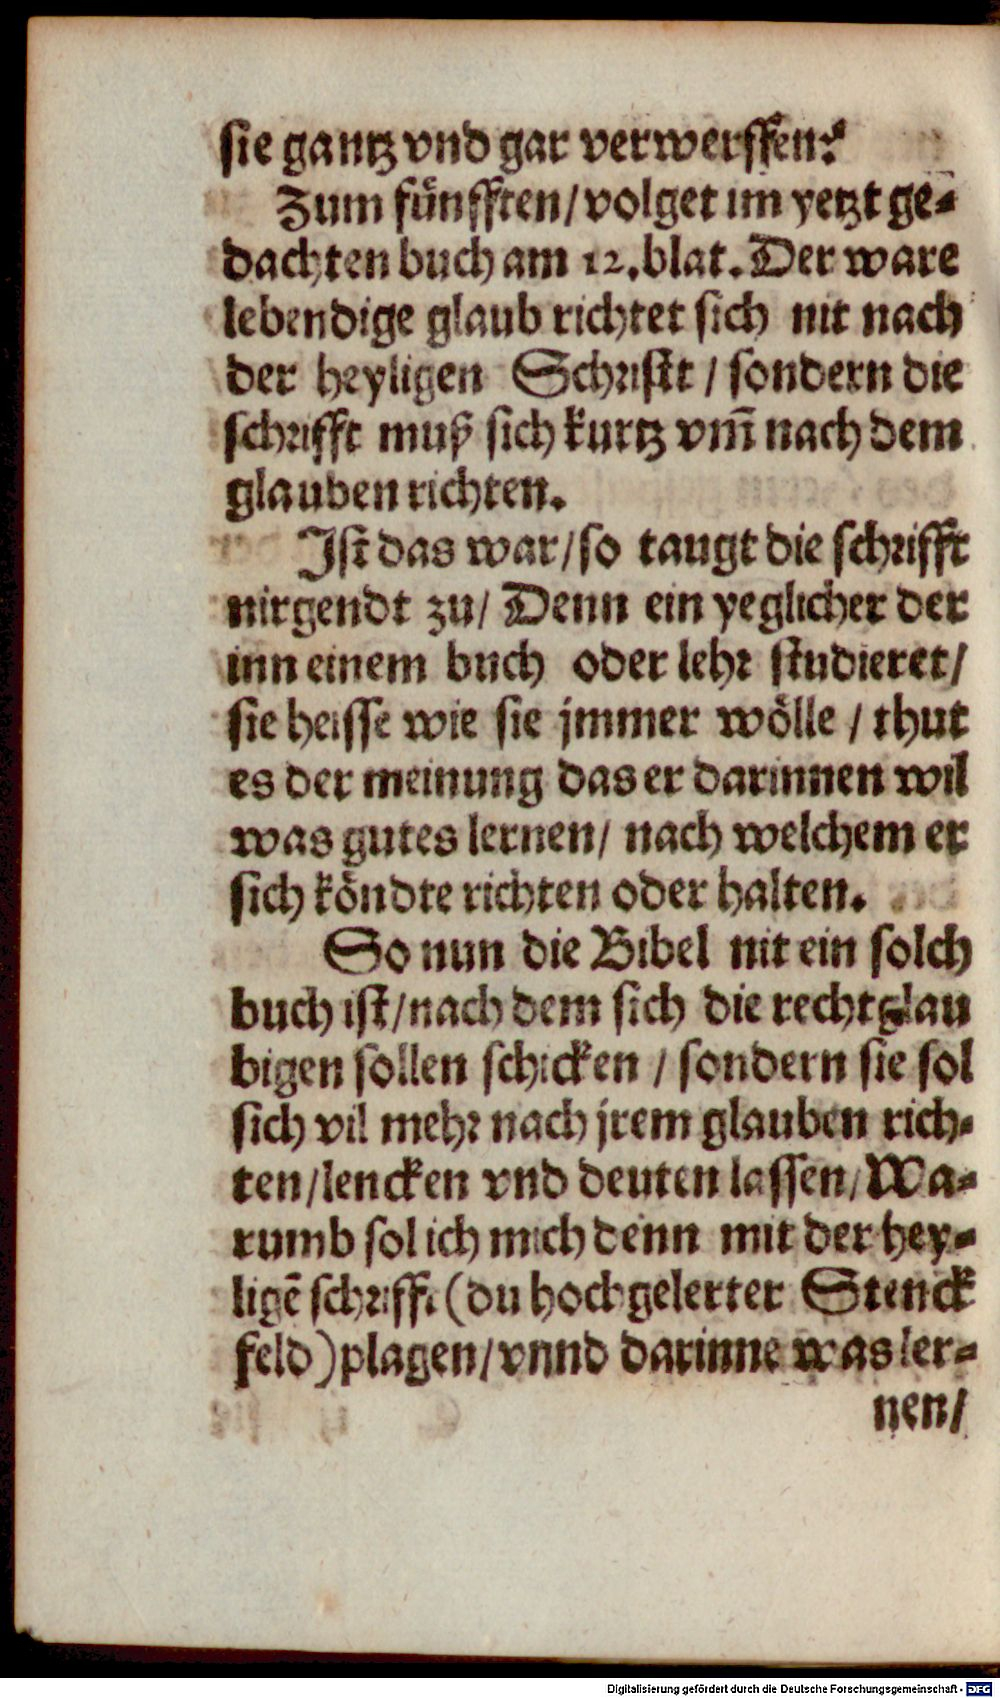 sie gantz vnd gar verwerffen?
Zum fünfften/volget im yetzt ge-
dachten buch am 12.blat. Der ware
lebendige glaub richtet sich nit nach
der heyligen Schrifft / sondern die
schrifft muß sich kurtz vm̃ nach dem
glauben richten.
Ist das war/so taugt die schrifft
nirgendt zu/ Denn ein yeglicher der
inn einem buch oder lehr studieret/
sie heisse wie sie jmmer wölle / thut
es der meinung das er darinnen wil
was gutes lernen/ nach welchem er
sich köndte richten oder halten.
So nun die Bibel nit ein solch
buch ist/nach dem sich die rechtglau
bigen sollen schicken / sondern sie sol
sich vil mehr nach jrem glauben rich-
ten/lencken vnd deuten lassen/Wa-
rumb sol ich mich denn mit der hey-
ligẽ schrifft (du hochgelerter Stenck
feld)plagen/vnnd darinne was ler-
nen/
Digitalisierung gefördert durch die Deutsche Forschungsgemeinschaft - DFG